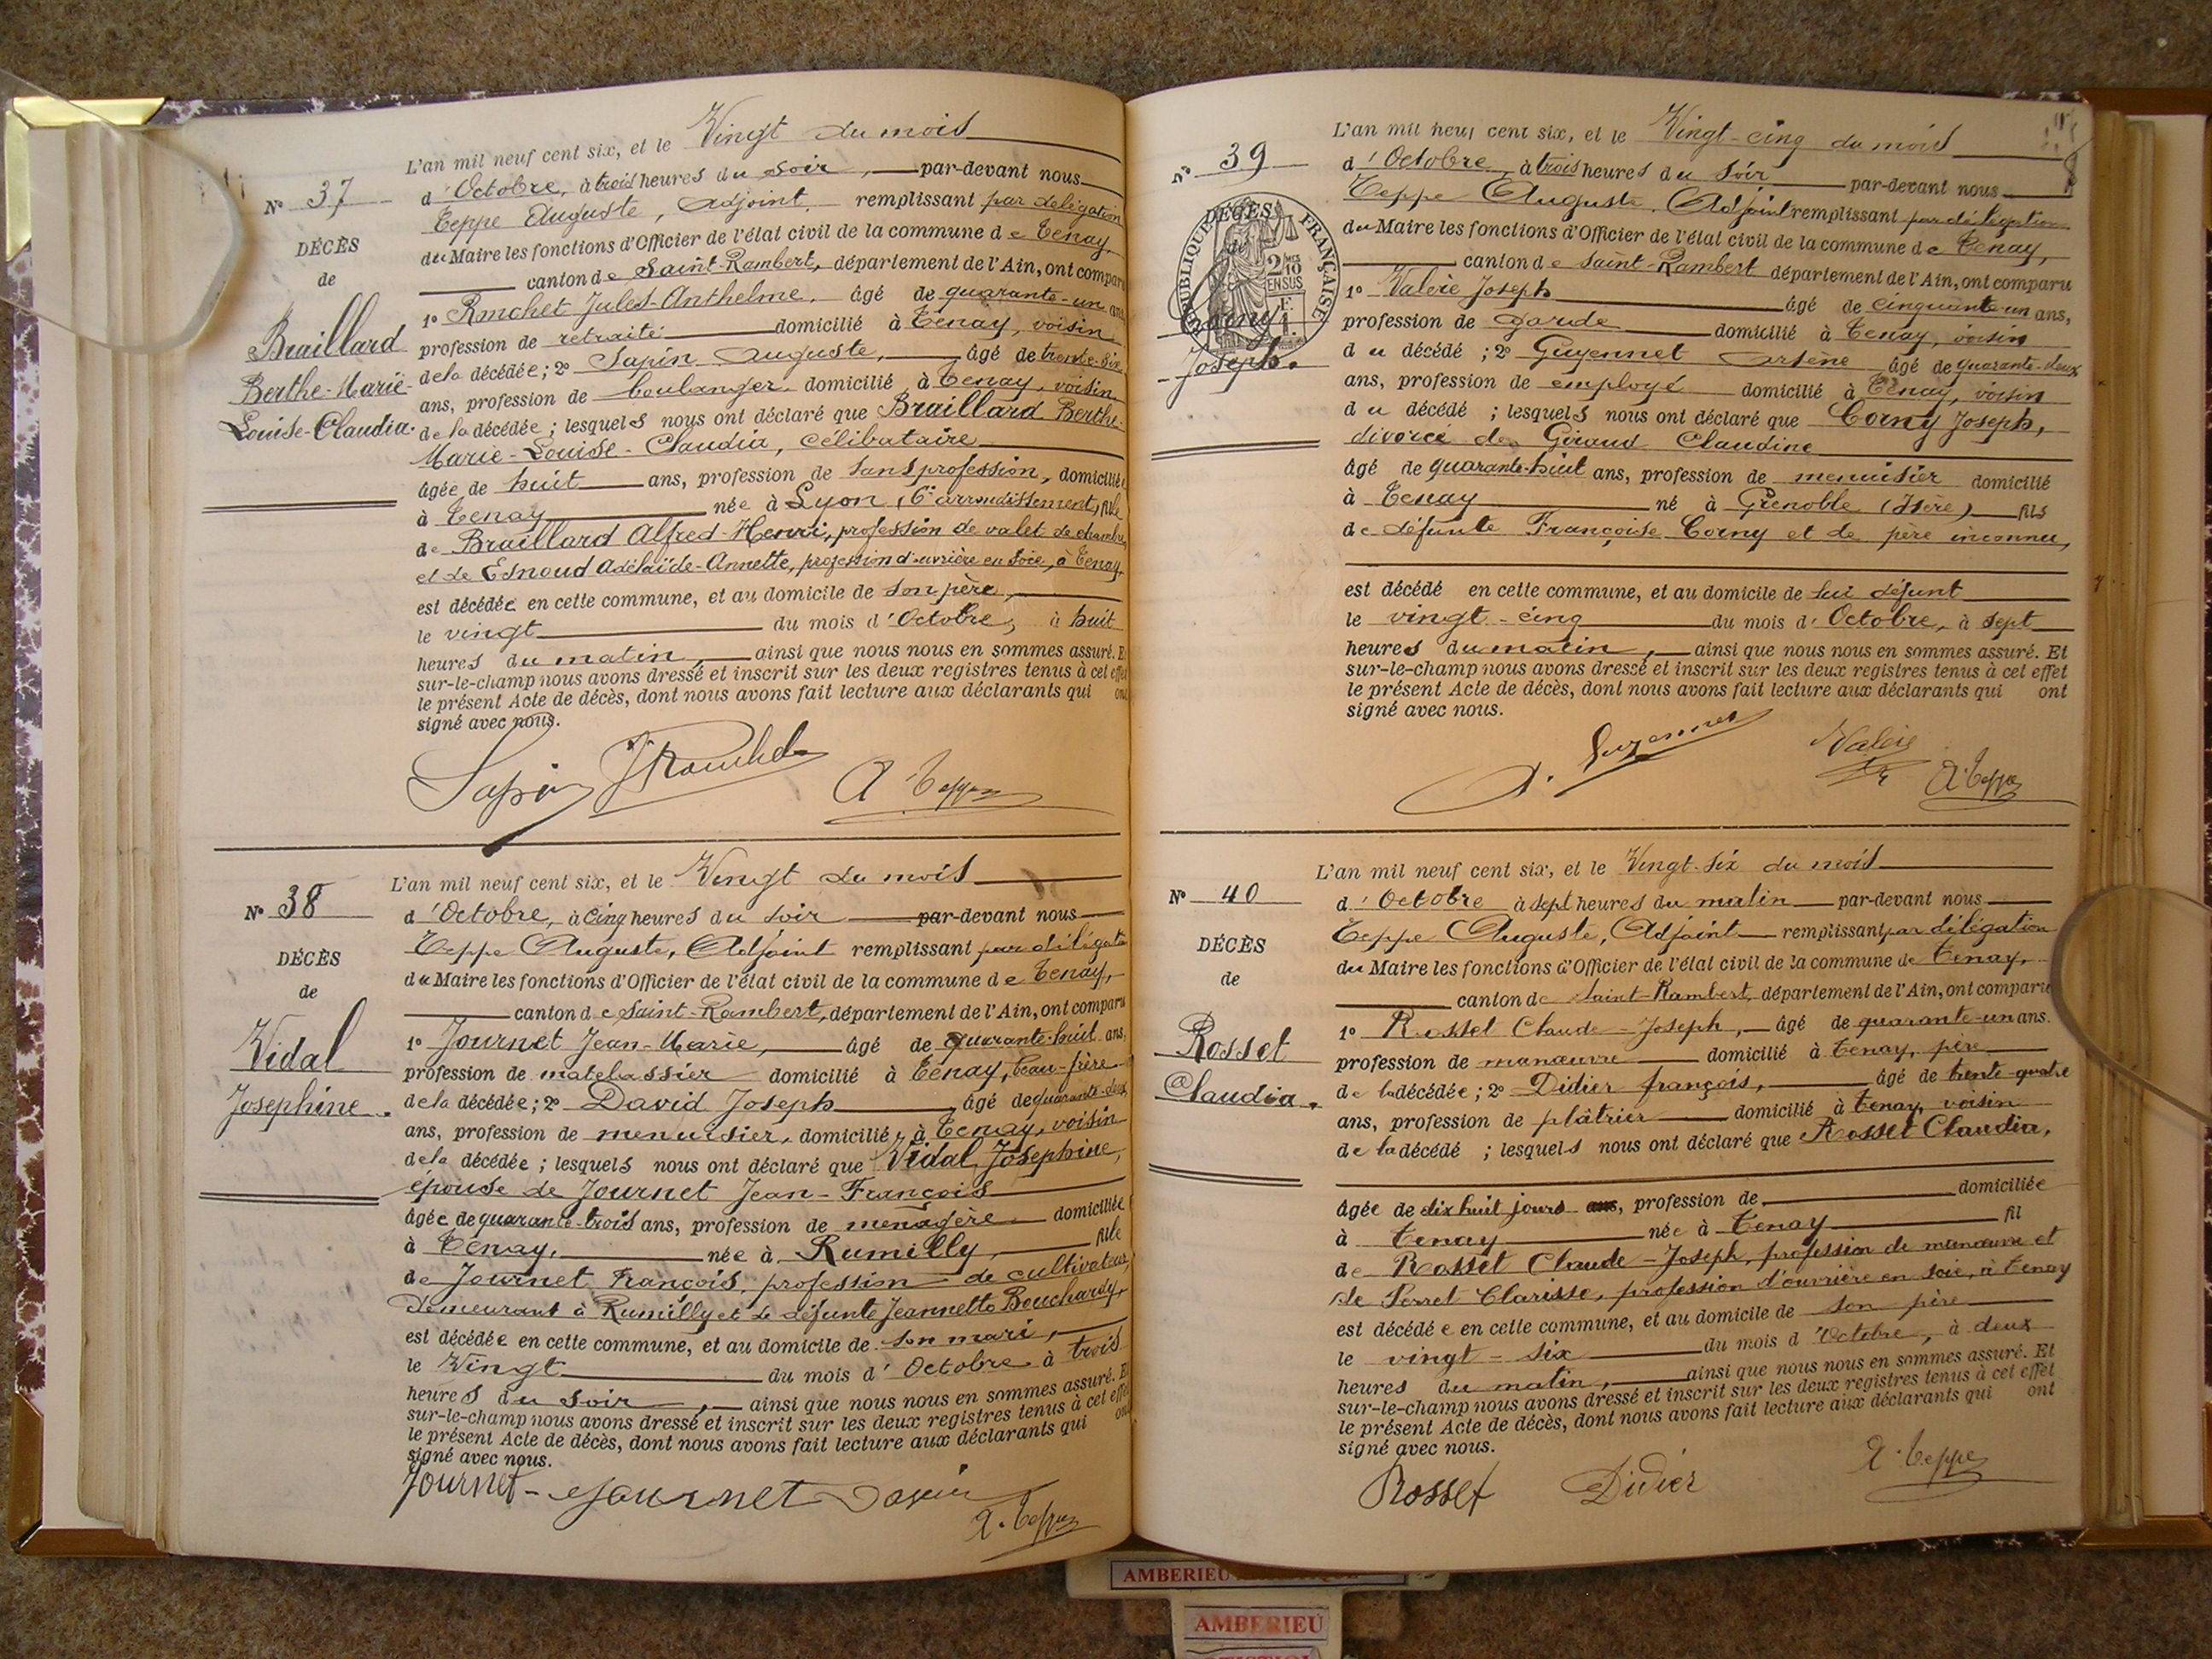 N° 37
DÉCÈS
de
Braillard
Berthe-Marie-
Louise-Claudia.
L'an mil neuf cent six, et le Vingt du mois
d'Octobre, à trois heures du soir, par-devant nous
Teppe Auguste, Adjoint, remplissant par délégation
du Maire les fonctions d'Officier de l'état civil de la commune de Tenay,
canton de Saint-Rambert, département de l'Ain, ont comparu
1° Rochet Jules-Anthelme, âgé de quarante-un ans
profession de retraité domicilié à Tenay, voisin
de la décédée; 2° Sapin Auguste, âgé de trente-six
ans, profession de boulanger domicilié à Tenay, voisin
de la décédée; lesquels nous ont déclaré que Braillard Berthe-
Marie-Louise-Claudia, célibataire
âgée de huit ans, profession de sans profession, domiciliée
à Tenay née à Lyon (6e arrondissement) fille
de Braillard Alfred-Henri, profession de valet de chambre,
et de Esnoud Adélaïde-Annette, profession d'ouvrière en soie, à Tenay,
est décédée en cette commune, et au domicile de son père,
le vingt du mois d'Octobre, à huit
heures du matin, ainsi que nous nous en sommes assuré. E
sur-le-champ nous avons dressé et inscrit sur les deux registres tenus à cet effet
le présent Acte de décès, dont nous avons fait lecture aux déclarants qui ont
signé avec nous.
Sapin JRouchet A. Teppe
N° 38
DÉCÈS
de
Vidal
Josephine.
L'an mil neuf cent six, et le Vingt du mois
d'Octobre, à cinq heures du soir par-devant nous
Teppe Auguste, Adjoint remplissant par délégat
du Maire les fonctions d'Officier de l'état civil de la commune de Tenay,
canton de Saint-Rambert, département de l'Ain, ont comparu
1° Journet Jean-Marie, âgé de quarante-huit ans,
profession de matelassier domicilié à Tenay, beau-frère
de la décédée; 2° David Joseph âgé de quarante-deux
ans, profession de menuisier, domicilié à Tenay, voisin
de la décédée; lesquels nous ont déclaré que Vidal Josephine,
épouse de Journet Jean-François
âgée de quarante-trois ans, profession de ménagère domiciliée
à Tenay, née à Rumilly, fille
de Journet François, profession de cultivateur,
demeurant à Rumilly et de défunte Jeannette Bouchardy,
est décédée en cette commune, et au domicile de son mari,
le Vingt du mois d'Octobre à trois
heures du soir, ainsi que nous nous en sommes assuré. E
sur-le-champ nous avons dressé et inscrit sur les deux registres tenus à cet effet
le présent Acte de décès, dont nous avons fait lecture aux déclarants qui ont
signé avec nous.
Journet - Journet A. Teppe
N° 39
RÉPUBLIQUE FRANÇAISE
DÉCÈS
2/10
EN SUS
Corny
Joseph.
L'an mil neuf cent six, et le Vingt-cinq du mois
d'Octobre, à trois heures du soir par-devant nous
Teppe Auguste, Adjoint remplissant par délégation
du Maire les fonctions d'Officier de l'état civil de la commune de Tenay,
canton de Saint-Rambert département de l'Ain, ont comparu
1° Valérie Joseph âgé de cinquante-un ans,
profession de garde domicilié à Tenay, voisin
du décédé; 2° Guyennet Arsène âgé de quarante-deux
ans, profession de employé domicilié à Tenay, voisin
du décédé; lesquels nous ont déclaré que Corny Joseph,
divorcé de Giraud Claudine
âgé de quarante-huit ans, profession de menuisier domicilié
à Tenay né à Grenoble (Isère) fils
de défunte Françoise Corny et de père inconnu,
est décédé en cette commune, et au domicile de lui défunt
le vingt-cinq du mois d'Octobre, à sept
heures du matin, ainsi que nous nous en sommes assuré. Et
sur-le-champ nous avons dressé et inscrit sur les deux registres tenus à cet effet
le présent Acte de décès, dont nous avons fait lecture aux déclarants qui ont
signé avec nous.
A. Guyennet Valérie A. Teppe
N° 40
DÉCÈS
de
Rosset
Claudia.
L'an mil neuf cent six, et le Vingt-six du mois
d'Octobre à sept heures du matin par-devant nous
Teppe Auguste, Adjoint remplissant par délégation
du Maire les fonctions d'Officier de l'état civil de la commune de Tenay,
canton de Saint-Rambert, département de l'Ain, ont comparu
1° Rosset Claude-Joseph, âgé de quarante-un ans.
profession de manœuvre domicilié à Tenay, père
de la décédée; 2° Didier françois, âgé de trente-quatre
ans, profession de plâtrier domicilié à Tenay, voisin
de la décédé; lesquels nous ont déclaré que Rosset Claudia,
âgée de dix huit jours ans, profession de domiciliée
à Tenay née à Tenay fil
de Rosset Claude-Joseph, profession de manœuvre et
de Perret Clarisse, profession d'ouvrière en soie, à Tenay
est décédée en cette commune, et au domicile de son père
le vingt-six du mois d'Octobre, à deux
heures du matin, ainsi que nous nous en sommes assuré. Et
sur-le-champ nous avons dressé et inscrit sur les deux registres tenus à cet effet
le présent Acte de décès, dont nous avons fait lecture aux déclarants qui ont
signé avec nous.
Rosset Didier A. Teppe
AMBERIEU
AMBERIEU